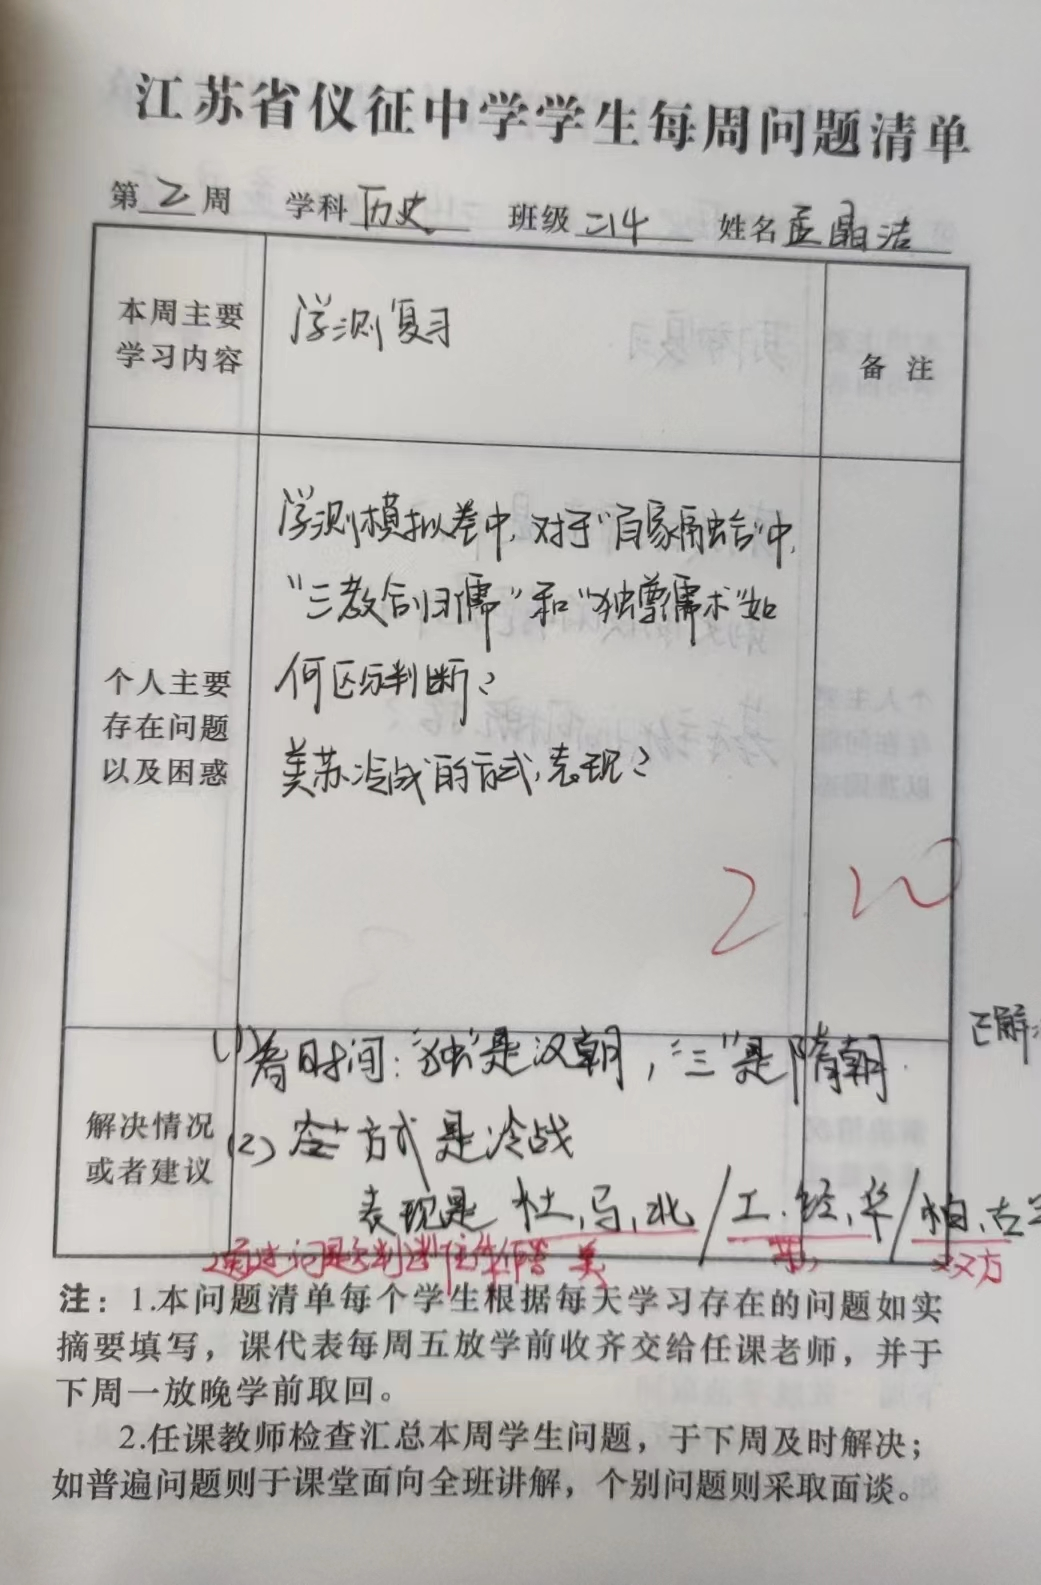 江苏省仪征中学学生每周问题清单
第 2 周 学科 历史 班级 二14 姓名 孟晶洁
本周主要
学习内容
学测复习
备 注
个人主要
存在问题
以及困惑
学测模拟卷中,对于“百家融合”中,
“三教合归儒”和“独尊儒术”如
何区分判断?
美苏冷战的方式,表现?
2.20
解决情况
或者建议
(1)看时间:“独”是汉朝,“三”是隋朝.
(2) 方式是冷战
表现是 杜,马,北/工.经,华/柏,古
美 苏 双方
注：1.本问题清单每个学生根据每天学习存在的问题如实
摘要填写，课代表每周五放学前收齐交给任课老师，并于
下周一放晚学前取回。
2.任课教师检查汇总本周学生问题，于下周及时解决；
如普遍问题则于课堂面向全班讲解，个别问题则采取面谈。